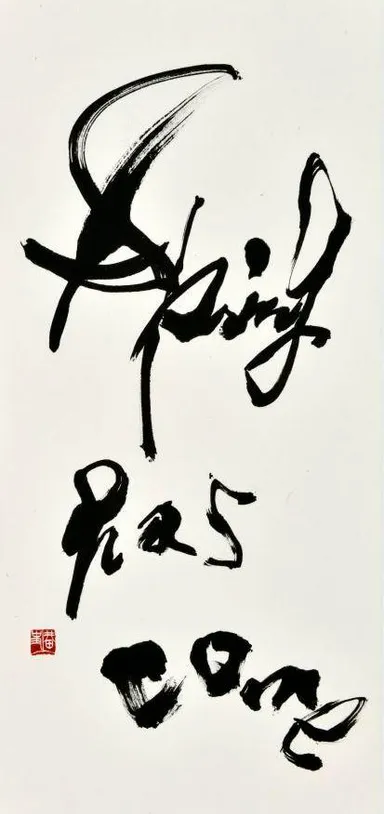 Spring
has
come